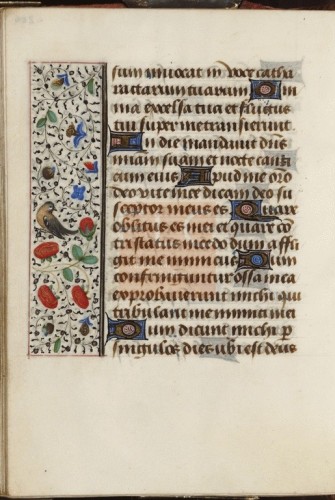 sum invocat in voce catha
ractarum tuarum Omn
ina excelsa tua et fluctus
tui super me transierunt
In die mandavit dns
miam suam et nocte canti
cum eius Apud me oro
deo vite mee dicam deo su
sceptor meus es Quare
oblitus es mei et quare co
tristatus incedo dum affli
git me inimicus Dum
confringuntur ossa mea
exprobaverunt michi qui
tribulant me inimici mei
Dum dicunt michi p
singulos dies ubi est deus